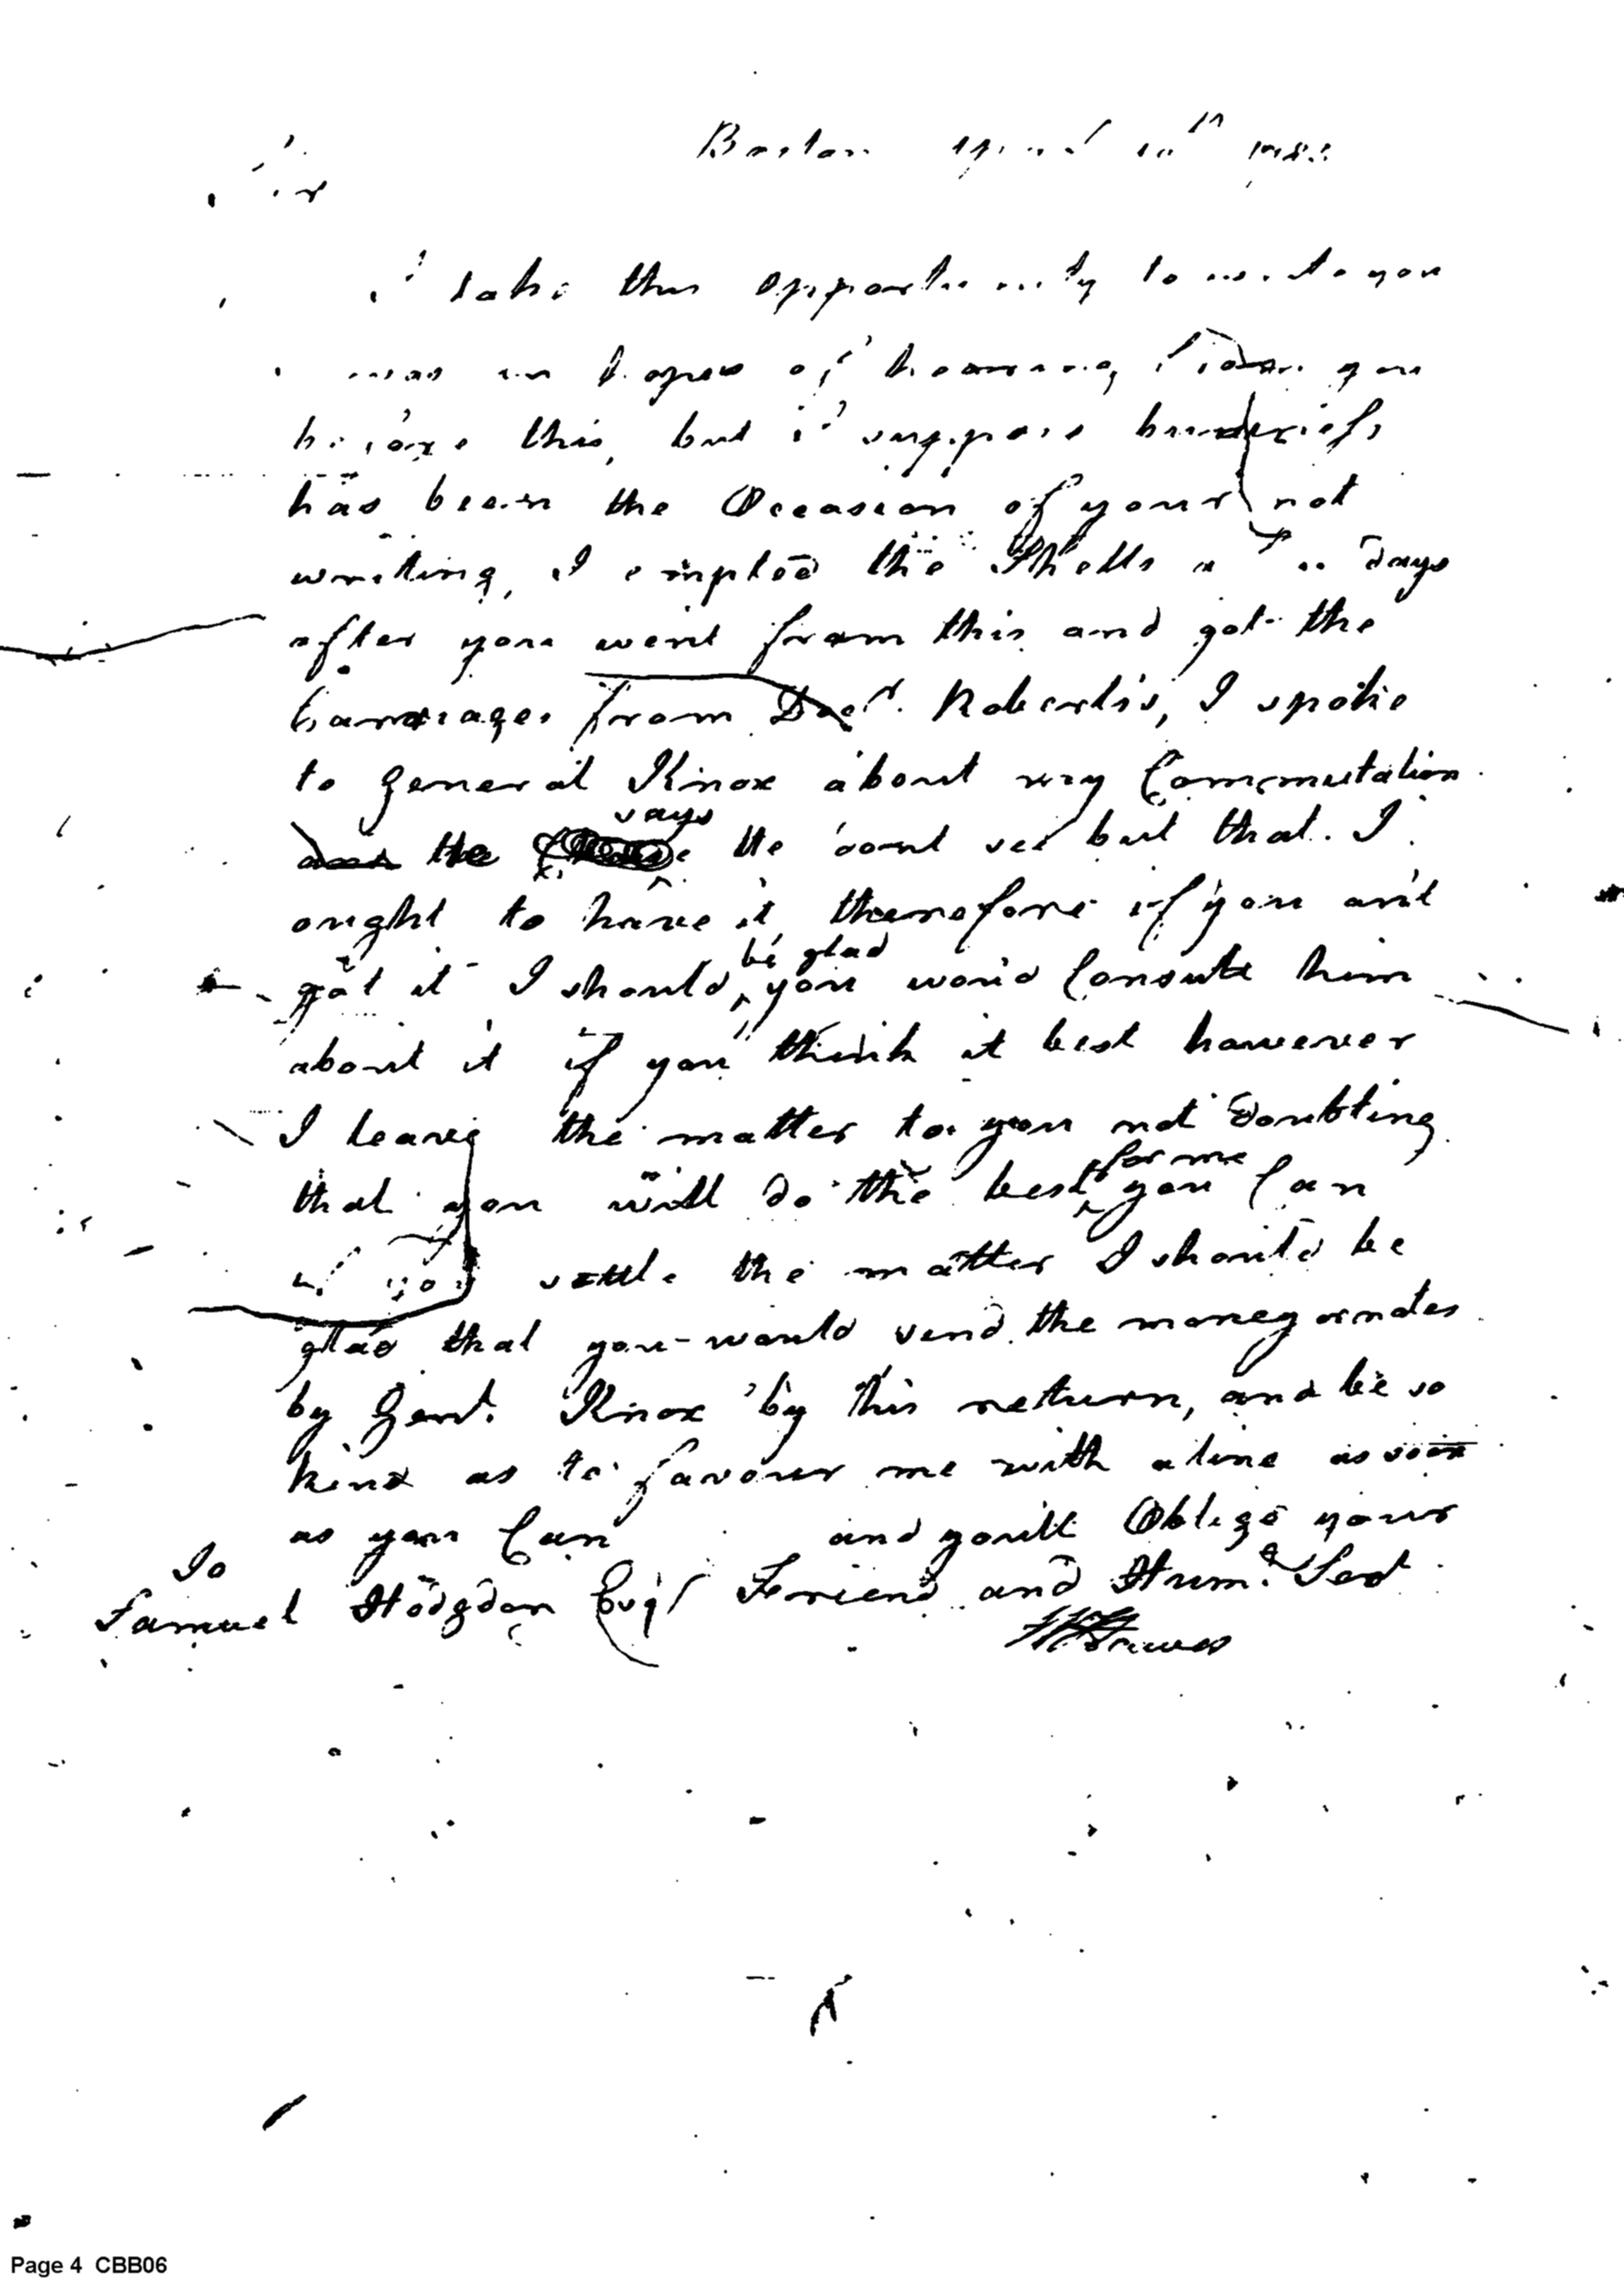 Boston April
Sir
I take this opportunity to write you
was in hopes of hearing from you
before this, but I suppose buissiness
has been the Occasion of your not
writing, I empted the Shells a days
after you went from this and got the
Carriages from Docr. Roberts's, I spoke
to General Knox about my Commutation
says
and he He dont see but that I
ought to have it therefore if you ant
be glad
got it I should you woud Consult him
about it if you think it best however
I leave the matter to you not doubting
for me
that you will do the best you Can
if you settle the matter I should be
glad that you would send the money or notes
by Genl. Knox by this return, and be so
kind as to favour me with a line as soon
as you Can and youll Oblige your
To
Samuel Hodgdon Esqr Friend and Humle Sert